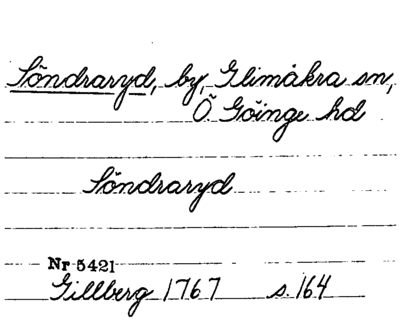 Söndraryd, by, Glimåkra sn,
Ö Göinge hd
Söndraryd
Nr 5421
Gillberg 1767 s. 164